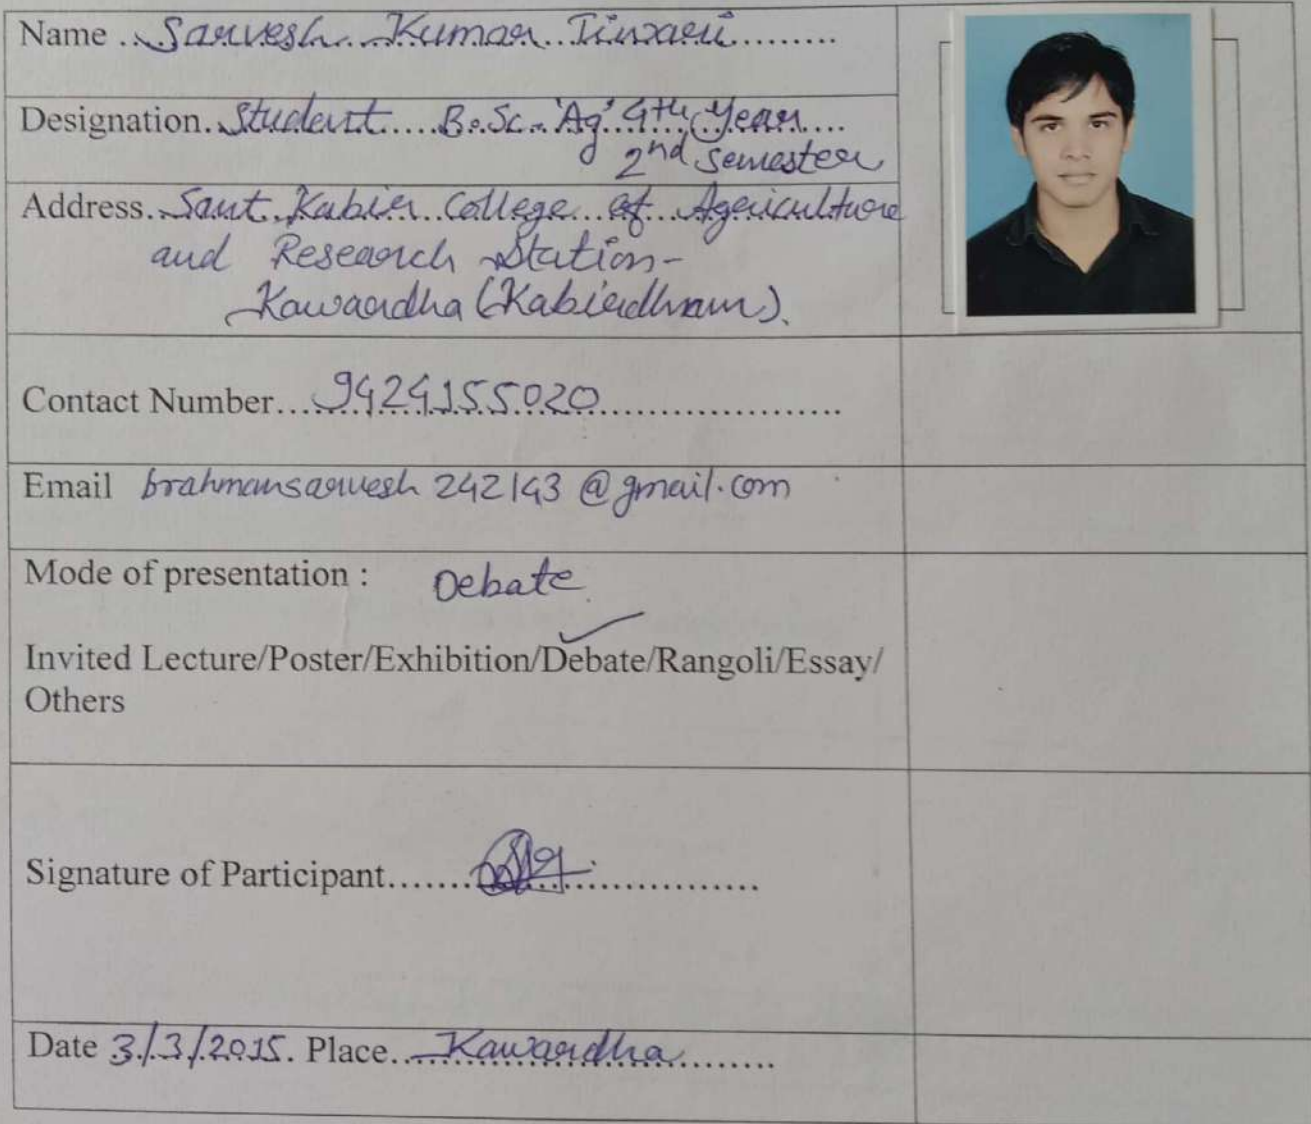 Name ..Sarvesh...Kumar..Tiwari.........
Designation..Student.....B.Sc..'Ag' 4th Year....
2nd semester
Address..Sant.Kabir..College..of..Agriculture
and Research Station-
Kawardha (Kabirdham).
Contact Number....9424155020........................
Email brahmansarvesh 242143 @gmail.com
Mode of presentation : Debate
Invited Lecture/Poster/Exhibition/Debate/Rangoli/Essay/
Others
Signature of Participant...........................
Date 3/3/2015. Place...Kawardha.........